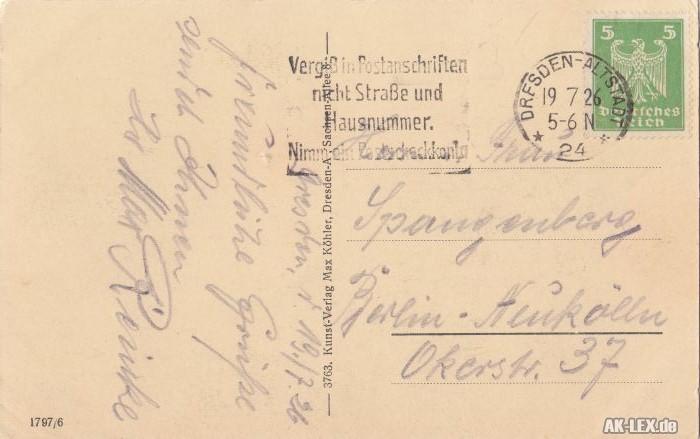 Vergiß in Postanschriften
nicht Straße und
Hausnummer.
Nimm ein Postscheckkonto
DRESDEN-ALTSTADT
19 7 26
5-6 N
* 24 *
5 5
Deutsches
Reich
Dresden, d. 19./7. 26
freundliche Grüße
sendet Ihnen
Ihr Max
Frau
Spangenberg
Berlin-Neukölln
Okerstr. 37
3763. Kunst-Verlag Max Köhler, Dresden-A., Sachsen-Allee 8.
1797/6
AK-LEX.de